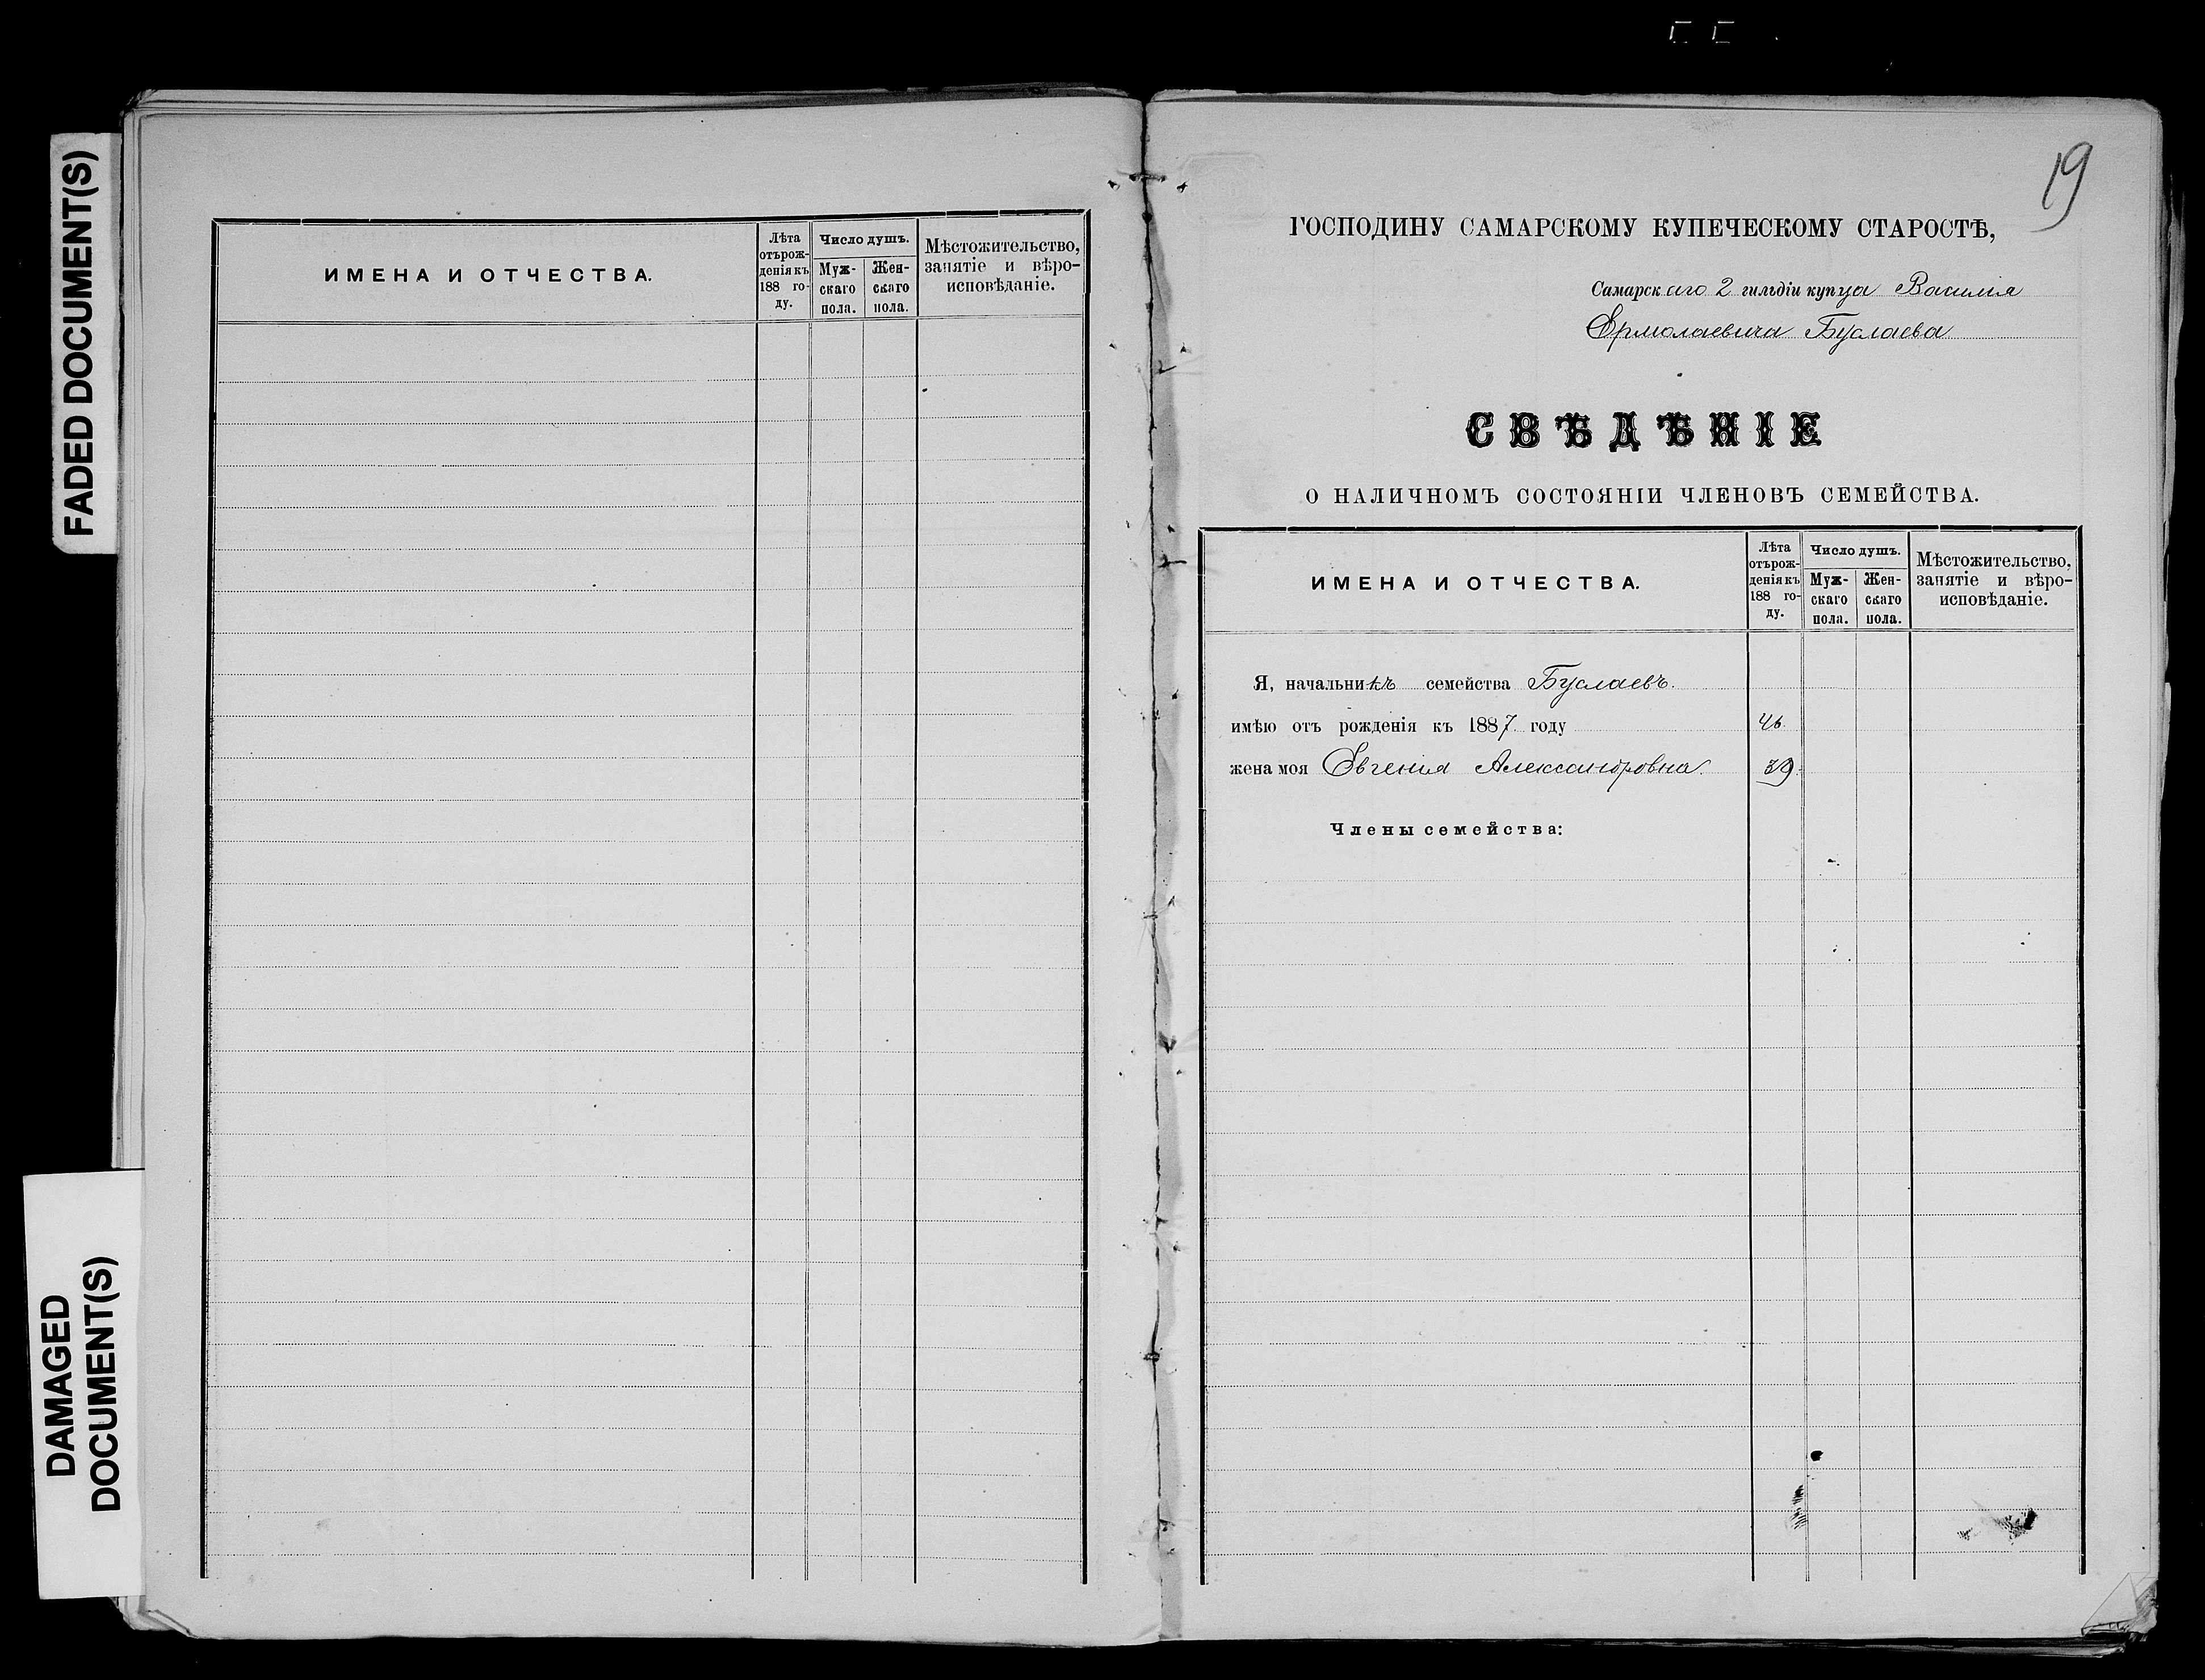 FADED DOCUMENT(S)
DAMAGED
DOCUMENT(S)
ИМЕНА И ОТЧЕСТВА.
Лѣта
отърож-
денія къ
188 го-
ду.
Число душъ.
Муж-
скаго
пола.
Жен-
скаго
пола.
Мѣстожительство,
занятіе и вѣро-
исповѣданіе.
19
ГОСПОДИНУ САМАРСКОМУ КУПЕЧЕСКОМУ СТАРОСТѢ,
Самарскаго 2 гильдіи купца Василія
Ермолаевича Буслаева
СВѢДѢНІЕ
О НАЛИЧНОМЪ СОСТОЯНІИ ЧЛЕНОВЪ СЕМЕЙСТВА.
ИМЕНА И ОТЧЕСТВА.
Лѣта
отърож-
денія къ
188 го-
ду.
Число душъ.
Муж-
скаго
пола.
Жен-
скаго
пола.
Мѣстожительство,
занятіе и вѣро-
исповѣданіе.
Я, начальникъ семейства Буслаевъ.
имѣю отъ рожденія къ 1887 году 46.
жена моя Евгенія Александровна. 39.
Члены семейства: